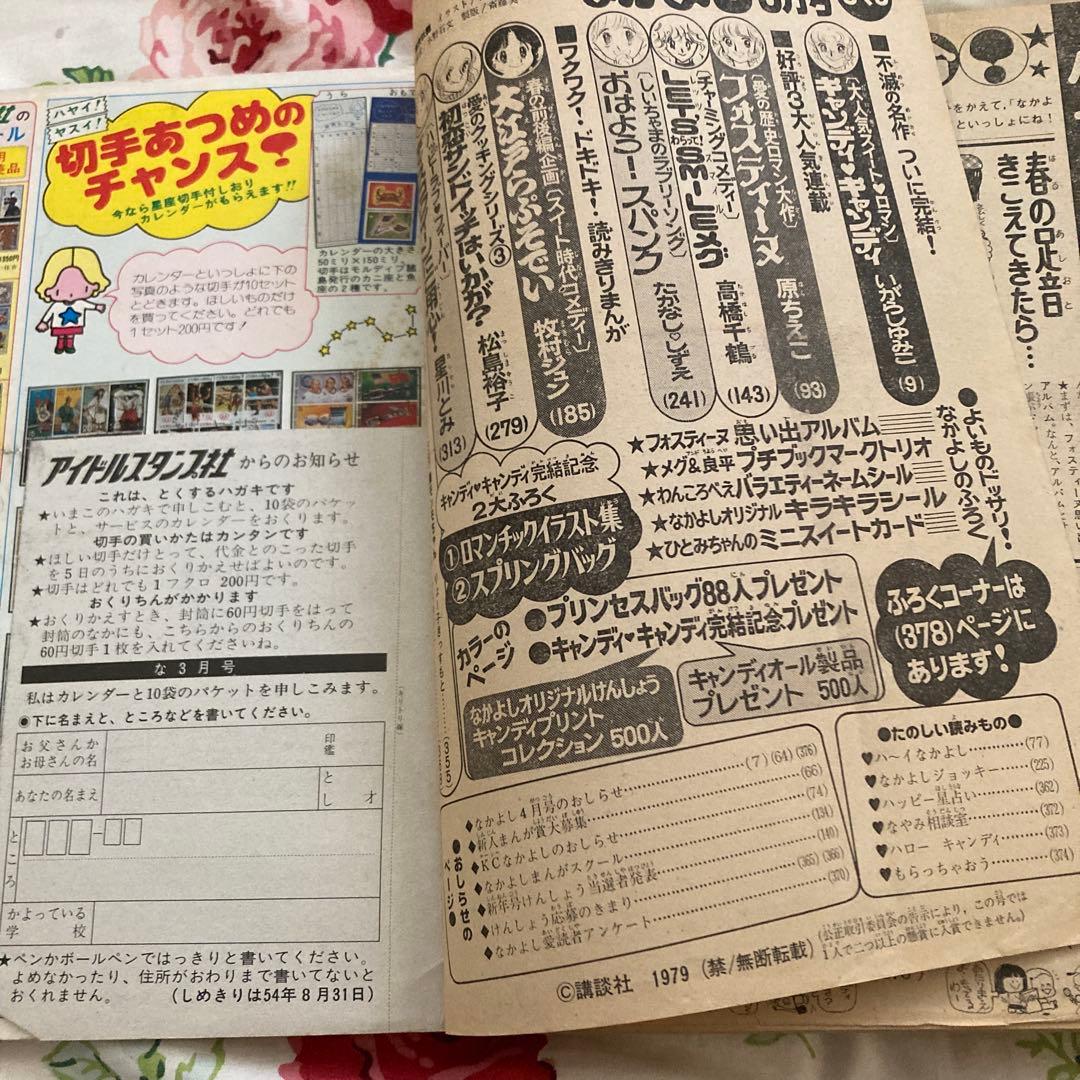 ハヤイ!
ヤスイ!
切手あつめの
チャンス!
今なら星座切手付しおり
カレンダーがもらえます!!
うら
おもて
カレンダーの大きさ
50ミリ×150ミリ、
切手はモルディブ諸
島発行のカニ座と魚
座の2種です。
カレンダーといっしょに下の
写真のような切手が10セット
とどきます。ほしいものだけ
を買ってください。どれでも
1セット200円です!
アイドルスタンプ社からのお知らせ
これは、とくするハガキです
★いまこのハガキで申しこむと、10袋のパケッ
トと、サービスのカレンダーをおくります。
切手の買いかたはカンタンです
★ほしい切手だけとって、代金とのこった切手
を5日のうちにおくりかえせばよいのです。
★切手はどれでも1フクロ 200円です。
おくりちんがかかります
★おくりかえすとき、封筒に60円切手をはって
封筒のなかにも、こちらからのおくりちんの
60円切手1枚を入れてくださいね。
な3月号
私はカレンダーと10袋のパケットを申しこみます。
●下に名まえと、ところなどを書いてください。
お父さんか
お母さんの名
印鑑
あなたの名まえ
とし
才
ところ
かよっている
学校
★ペンかボールペンではっきりと書いてください。
よめなかったり、住所がおわりまで書いてないと
おくれません。
(しめきりは54年8月31日)
●不滅の名作 ついに完結!
[大人気スイート♥ロマン]
キャンディ♥キャンディ いがらしゆみこ (9)
●好評3大人気連載
[愛の歴史ロマン大作]
フォスティーヌ 原ちえこ (93)
[チャーミングコメディー]
LET'SSMILEメグ 高橋千鶴 (143)
[しいちゃまのラブリーソング]
おはよう!スパンク たかなし♡しずえ (241)
●ワクワク!・ドキドキ!・読みきりまんが
春の前後編企画[スイート時代コメディー]
大江戸らぷそでい 牧村ジュン (185)
愛のクッキングシリーズ③
初恋サンドイッチはいかが? 松島裕子 (279)
星川とみ (313)
●よいものドッサリ!
なかよしのふろく
★フォスティーヌ思い出アルバム
★メグ&良平プチブックマークトリオ
★わんころべえバラエティーネームシール
★なかよしオリジナルキラキラシール
★ひとみちゃんのミニスイートカード
キャンディ♥キャンディ完結記念
2大ふろく
①ロマンチックイラスト集
②スプリングバッグ
ふろくコーナーは
(378)ページに
あります!
カラーの
ページ
●プリンセスバッグ88人プレゼント
●キャンディ♥キャンディ完結記念プレゼント
なかよしオリジナルけんしょう
キャンディプリント
コレクション 500人
キャンディオール製品
プレゼント 500人
(355)
●おしらせの
ページ●
◆なかよし4月号のおしらせ(7)(64)(376)
◆新人まんが賞大募集(66)
◆KCなかよしのおしらせ(74)
◆なかよしまんがスクール(134)
◆新年号けんしょう当選者発表(140)
◆けんしょう応募のきまり(365)(366)
◆なかよし愛読者アンケート(370)
●たのしい読みもの●
♥ハ〜イなかよし(77)
♥なかよしジョッキー(225)
♥ハッピー星占い(362)
♥なやみ相談室(372)
♥ハロー キャンディ(373)
♥もらっちゃおう(374)
(公正取引委員会の告示により、この号では
1人で二つ以上の懸賞に入賞できません。)
©講談社 1979 (禁/無断転載)
春の足音
きこえてきたら…